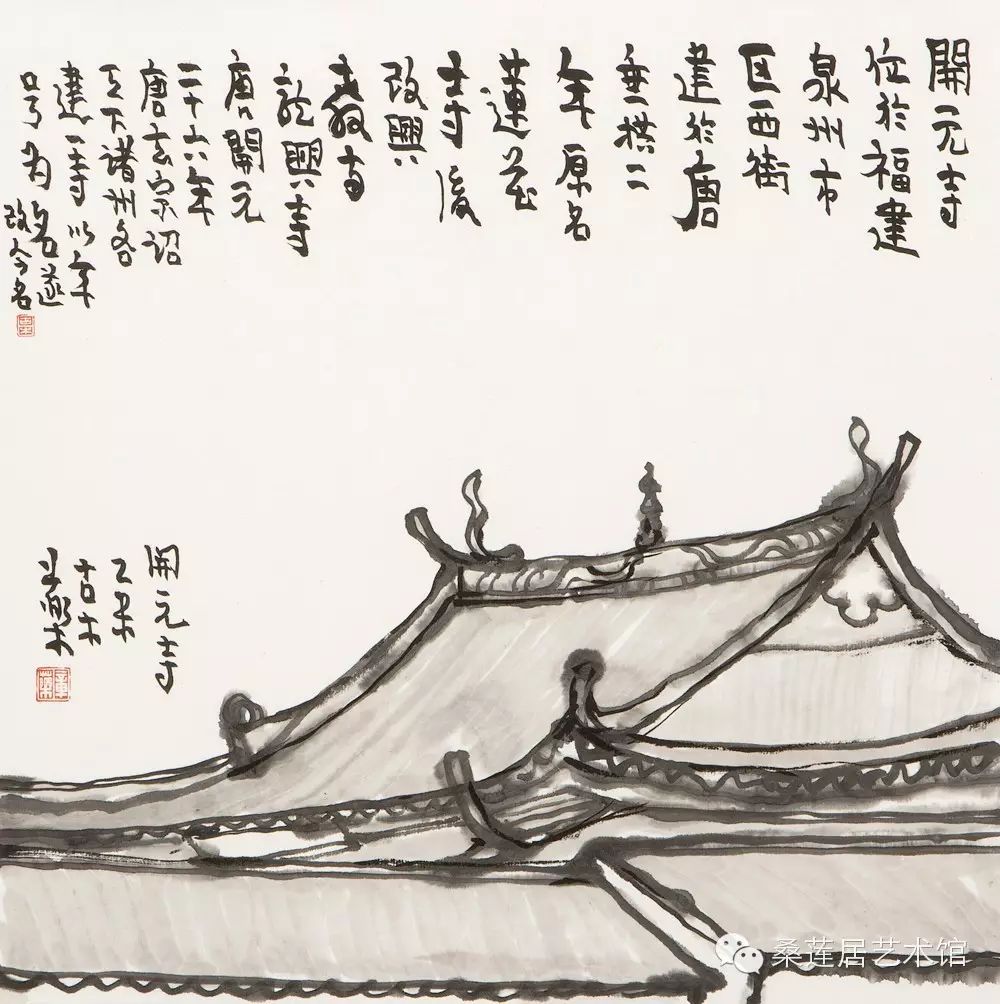 開元寺
位於福建
泉州市
区西街
建於唐
垂拱二
年原名
蓮花
寺後
改興
教寺
龍興寺
唐開元
二十六年
唐玄宗诏
天下诸州各
建一寺以年
号为名遂
改今名
開元寺
乙未
桑莲居艺术馆